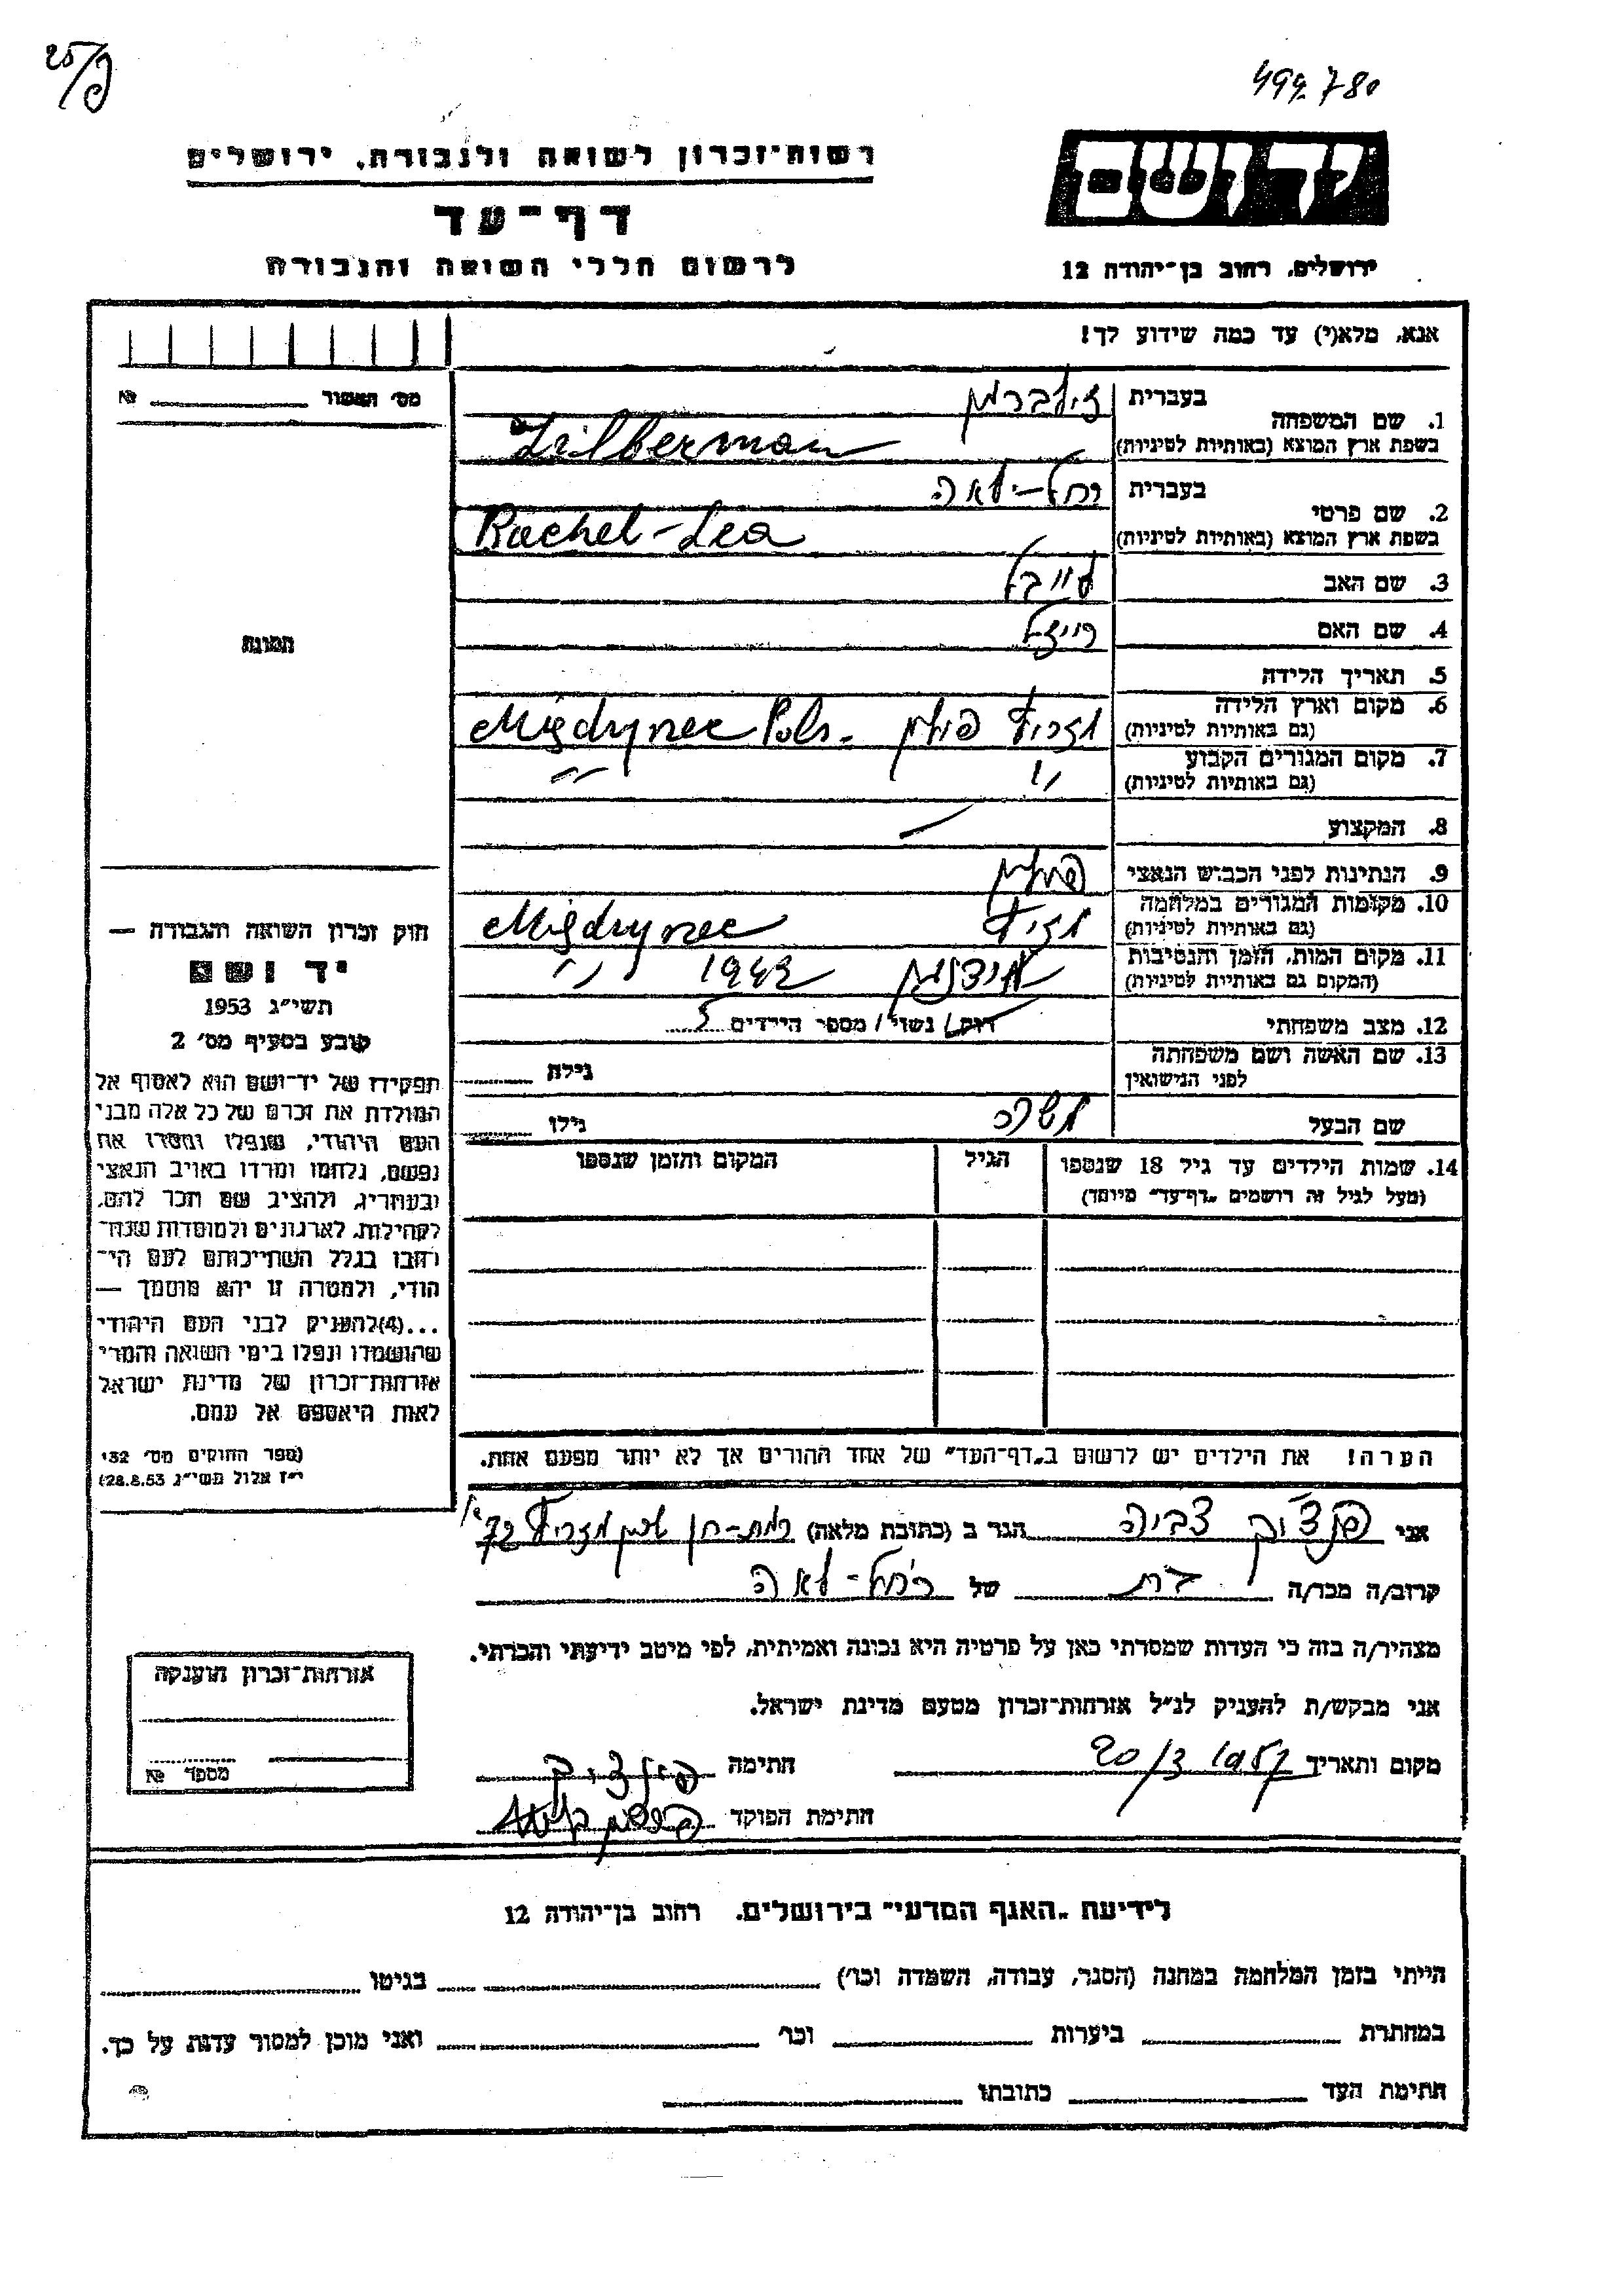 25/פ
499.780
רשות־זכרון לשואה ולגבורה, ירושלים
יד ושם
דף־עד
לרשום חללי השואה והגבורה
ירושלים, רחוב בן־יהודה 12
אנא, מלא(י) עד כמה שידוע לך!
מס' האשור № 
1. שם המשפחה בעברית זילברמן
בשפת ארץ המוצא (באותיות לטיניות) Zilberman
2. שם פרטי בעברית רחל-לאה
בשפת ארץ המוצא (באותיות לטיניות) Rachel-Lea
3. שם האב לייבל
4. שם האם רייזל
תמונה
5. תאריך הלידה
6. מקום וארץ הלידה
(גם באותיות לטיניות) פולין Migdrynec Pols.
7. מקום המגורים הקבוע
(גם באותיות לטיניות) " "
8. המקצוע —
9. הנתינות לפני הכבוש הנאצי פולין
10. מקומות המגורים במלחמה
(גם באותיות לטיניות) Migdrynec
11. מקום המות, הזמן והנסיבות
(המקום גם באותיות לטיניות) 1942 "
12. מצב משפחתי רווק/ נשוי/ מספר הילדים 5
13. שם האשה ושם משפחתה
לפני הנישואין גילה
שם הבעל גילו
14. שמות הילדים עד גיל 18 שנספו הגיל המקום והזמן שנספו
(מעל לגיל זה רושמים "דף־עד" מיוחד)
הערה! את הילדים יש לרשום ב"דף־העד" של אחד ההורים אך לא יותר מפעם אחת.
חוק זכרון השואה והגבורה —
יד ושם
תשי"ג 1953
קובע בסעיף מס' 2
תפקידו של יד־ושם הוא לאסוף אל
המולדת את זכרם של כל אלה מבני
העם היהודי, שנפלו ומסרו את
נפשם, נלחמו ומרדו באויב הנאצי
ובעוזריו, ולהציב שם וזכר להם,
לקהילות, לארגונים ולמוסדות שנח־
רבו בגלל השתייכותם לעם הי־
הודי, ולמטרה זו יהא מוסמך —
...(4)להעניק לבני העם היהודי
שהושמדו ונפלו בימי השואה והמרי
אזרחות־זכרון של מדינת ישראל
לאות היאספם אל עמם.
(ספר החוקים מס' 132,
י"ז אלול תשי"ג 28.8.53)
אני צביה הגר ב (כתובת מלאה) רמת-חן
קרוב/ה מכר/ה בת של רחל-לאה
מצהיר/ה בזה כי העדות שמסרתי כאן על פרטיה היא נכונה ואמיתית, לפי מיטב ידיעתי והכרתי.
אני מבקש/ת להעניק לנ"ל אזרחות־זכרון מטעם מדינת ישראל.
מקום ותאריך 20/3 1957 חתימה
חתימת הפוקד
אזרחות־זכרון הוענקה
מספר №
לידיעת "האגף המדעי" בירושלים, רחוב בן־יהודה 12
הייתי בזמן המלחמה במחנה (הסגר, עבודה, השמדה וכו') בגיטו
במחתרת ביערות וכו' ואני מוכן למסור עדות על כך.
חתימת העד כתובתו